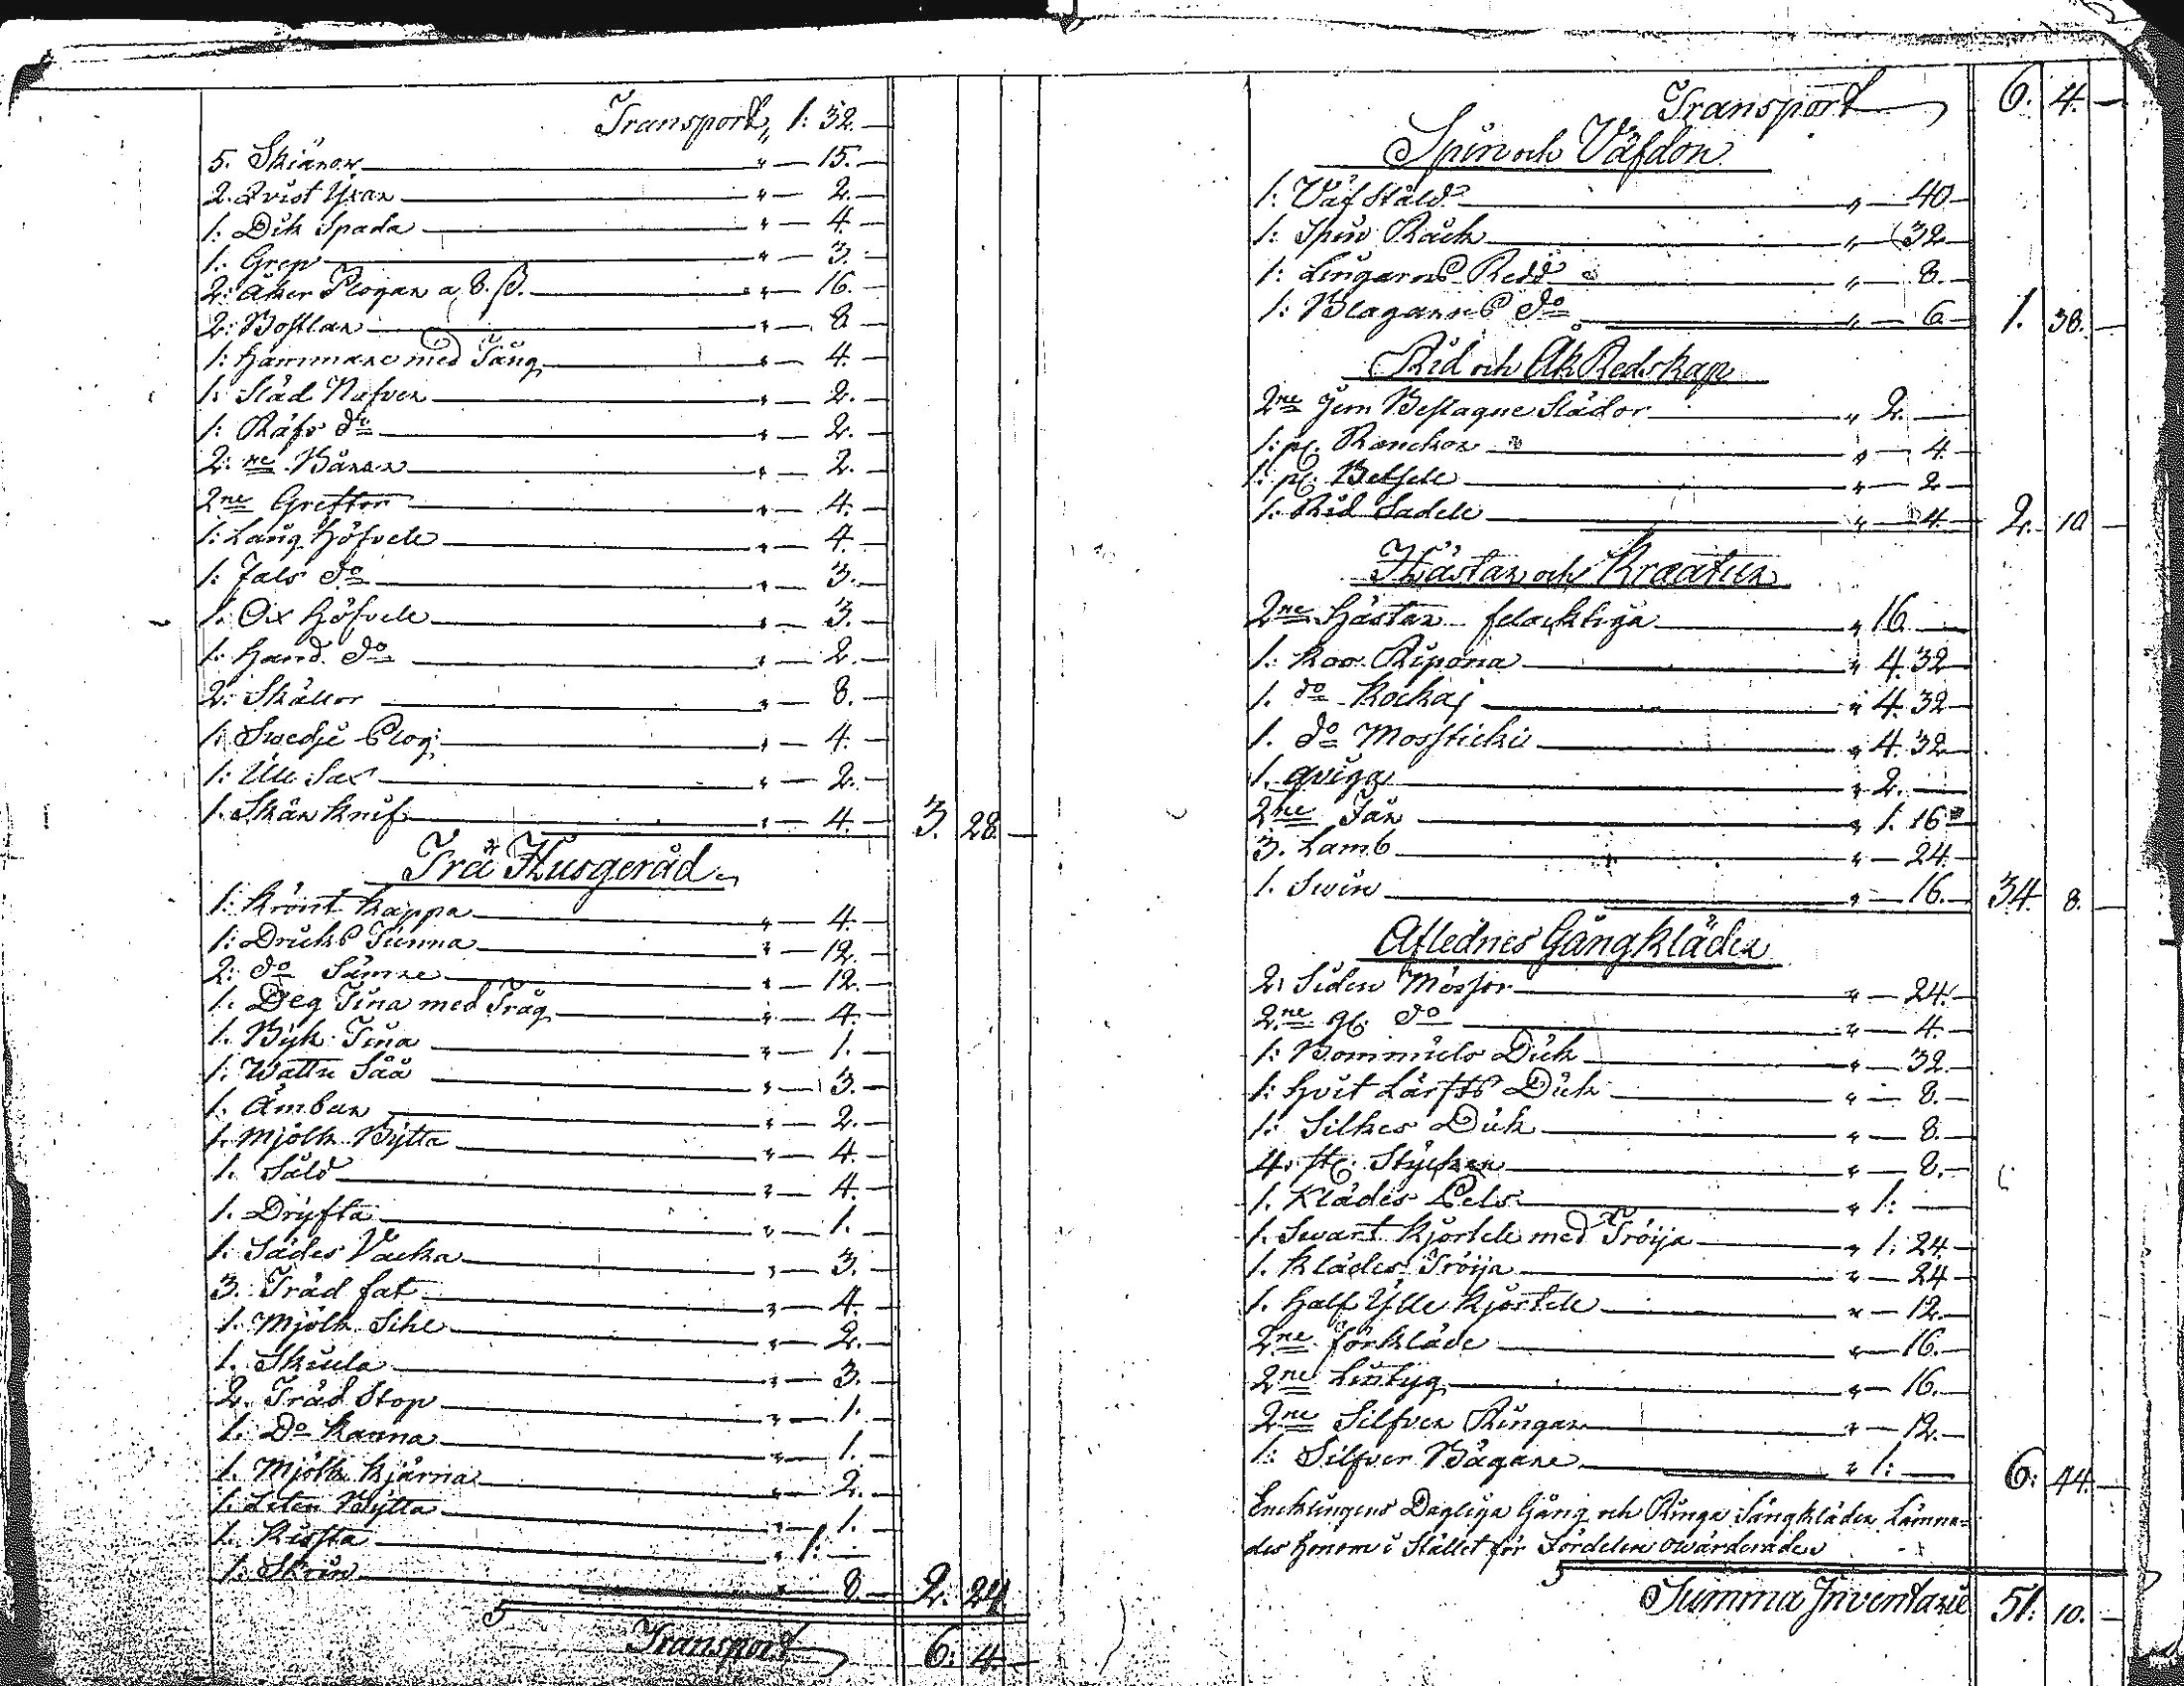 Transport " 1: 32.
5. Skiäror " — 15.
2. Qvist Yxar " — 2.
1: Dik Spada " — 4.
1: Grep " — 3.
2: åker Plogar a 8. ß. " — 16.
2: Bostlar " — 8.
1: hammare med Tång " — 4.
1: Släd Nafver " — 2.
1: Räfs do " — 2.
2: ne Bårar " — 2.
2ne Greftor " — 4.
1: Lång höfvele " — 4.
1: fals do " — 3.
1: Ox höfvele " — 3.
1: hand do " — 2.
2: Skällor " — 8.
1: Swedje Plog " — 4.
1: Ull Sax " — 2.
1. Skär knif " — 4. 3. 28.
Trä Husgeråd
1: krönt kappa " — 4.
1: Dricks Tunna " — 12.
2: do Sämre " — 12.
1. Deg Tina med Tråg " — 4.
1. Byk Tina " — 1.
1: Wattu Såå " — 3.
1. Ämbar " — 2.
1. Mjölk Bytta " — 4.
1. Såld " — 4.
1. Dryfta " — 1.
1. Sädes Vacka " — 3.
3. Träd fat " — 4.
1. Mjölk Sihl " — 2.
1. Skiula " — 3.
2. Träd Stop " — 1.
1. Do kanna " — 1.
1. Mjölk kjärna " — 2.
1. Liten Bytta " — 1.
1. Kissta " 1: —
1. Skrin " 8. 2. 24
Transport 6: 4
Transport 6. 4.
Spin och Väfdon
1. Väf Ståld " — 40
1: Spin Råck " — 32
1: Lingarns Redd " — 8.
1: Blagarns do " — 6 1. 38.
Rid och Åk Redskap
2ne Jern Beslagne Slädor " 2. —
1: pr. Ranckor " — 4.
1: pr. Betsele " — 2
1. Rid Sadele " — 4. 2. 10
Hästar och Kreatur
2ne hästar felachtiga " 16 —
1. koo Ripona " 4. 32
1. do Rockaj " 4. 32
1. do Mossticki " 4. 32
1. qviga " 2. —
2ne Får " 1. 16
3. Lamb " — 24.
1. Swin " — 16. 34. 8.
Aflednes Gångkläder
2: Siden Mössor " — 24.
2ne gl. do " — 4.
1: Bommuls Duk " — 32.
1: hvit Lärfts Duk " — 8.
1: Silkes Duk " — 8.
4. st. Stycken " — 8.
1. Klädes Pels " 1: —
1. Swart kjortele med Tröija " 1. 24
1. klädes Tröija " — 24
1. half Ylle kjortele " — 12.
2ne förkläde " — 16.
2ne Lintyg " — 16.
2ne Silfver Ringar " — 12.
1: Silfver Bägare " 1: — 6: 44
Encklingens Dagliga Gång och Ringa Sängkläder Lämna=
des honom i Stället för Fördelen owärderade
Summa Inventarie 51: 10.